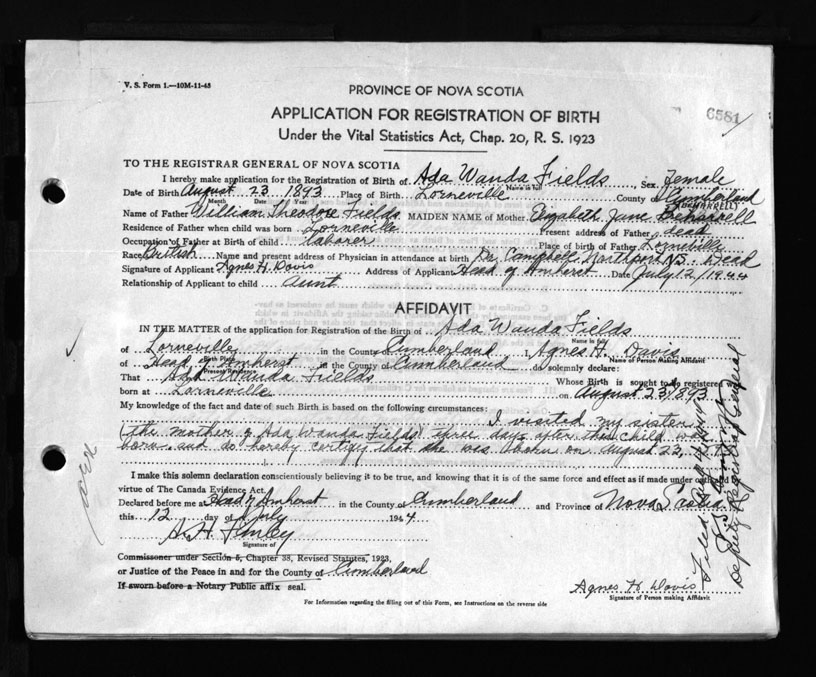 V. S. Form 1.—10M-11-43
6581
PROVINCE OF NOVA SCOTIA
APPLICATION FOR REGISTRATION OF BIRTH
Under the Vital Statistics Act, Chap. 20, R. S. 1923
TO THE REGISTRAR GENERAL OF NOVA SCOTIA
I hereby make application for the Registration of Birth of Ada Wanda Fields Sex Female
Name in full
Date of Birth August 23 1893 Place of Birth Lorneville County of Cumberland
Month Date Year
Name of Father William Theodore Fields MAIDEN NAME of Mother Elizabeth Jane
Residence of Father when child was born Lorneville Present address of Father dead
Occupation of Father at Birth of child Laborer Place of birth of Father Lorneville
Race British Name and present address of Physician in attendance at birth Dr. Campbell Northport N.S. Dead
Signature of Applicant Agnes H. Davis Address of Applicant Head of Amherst Date July 12/1944
Relationship of Applicant to child aunt
AFFIDAVIT
IN THE MATTER of the application for Registration of the Birth of Ada Wanda Fields
Name in full
of Lorneville in the County of Cumberland I, Agnes H. Davis
Birth Place Name of Person Making Affidavit
of Head of Amherst in the County of Cumberland do solemnly declare:
Present Residence
That Ada Wanda Fields Whose Birth is sought to be registered was
born at Lorneville on August 23/1893
My knowledge of the fact and date of such Birth is based on the following circumstances:
I visited my sister
(the mother of Ada Wanda Fields) three days after the child was
born and do hereby certify that she was born on August 23,
I make this solemn declaration conscientiously believing it to be true, and knowing that it is of the same force and effect as if made under oath
virtue of The Canada Evidence Act.
Declared before me at Head of Amherst in the County of Cumberland and Province of Nova Scotia
this 12 day of July 1944
A. H. Finley
Signature of
Commissoner under Section 5, Chapter 38, Revised Statutes, 1923,
or Justice of the Peace in and for the County of Cumberland
If sworn before a Notary Public affix seal.
Agnes H Davis
Signature of Person making Affidavit
For Information regarding the filling out of this Form, see Instructions on the reverse side
Deputy Registrar General